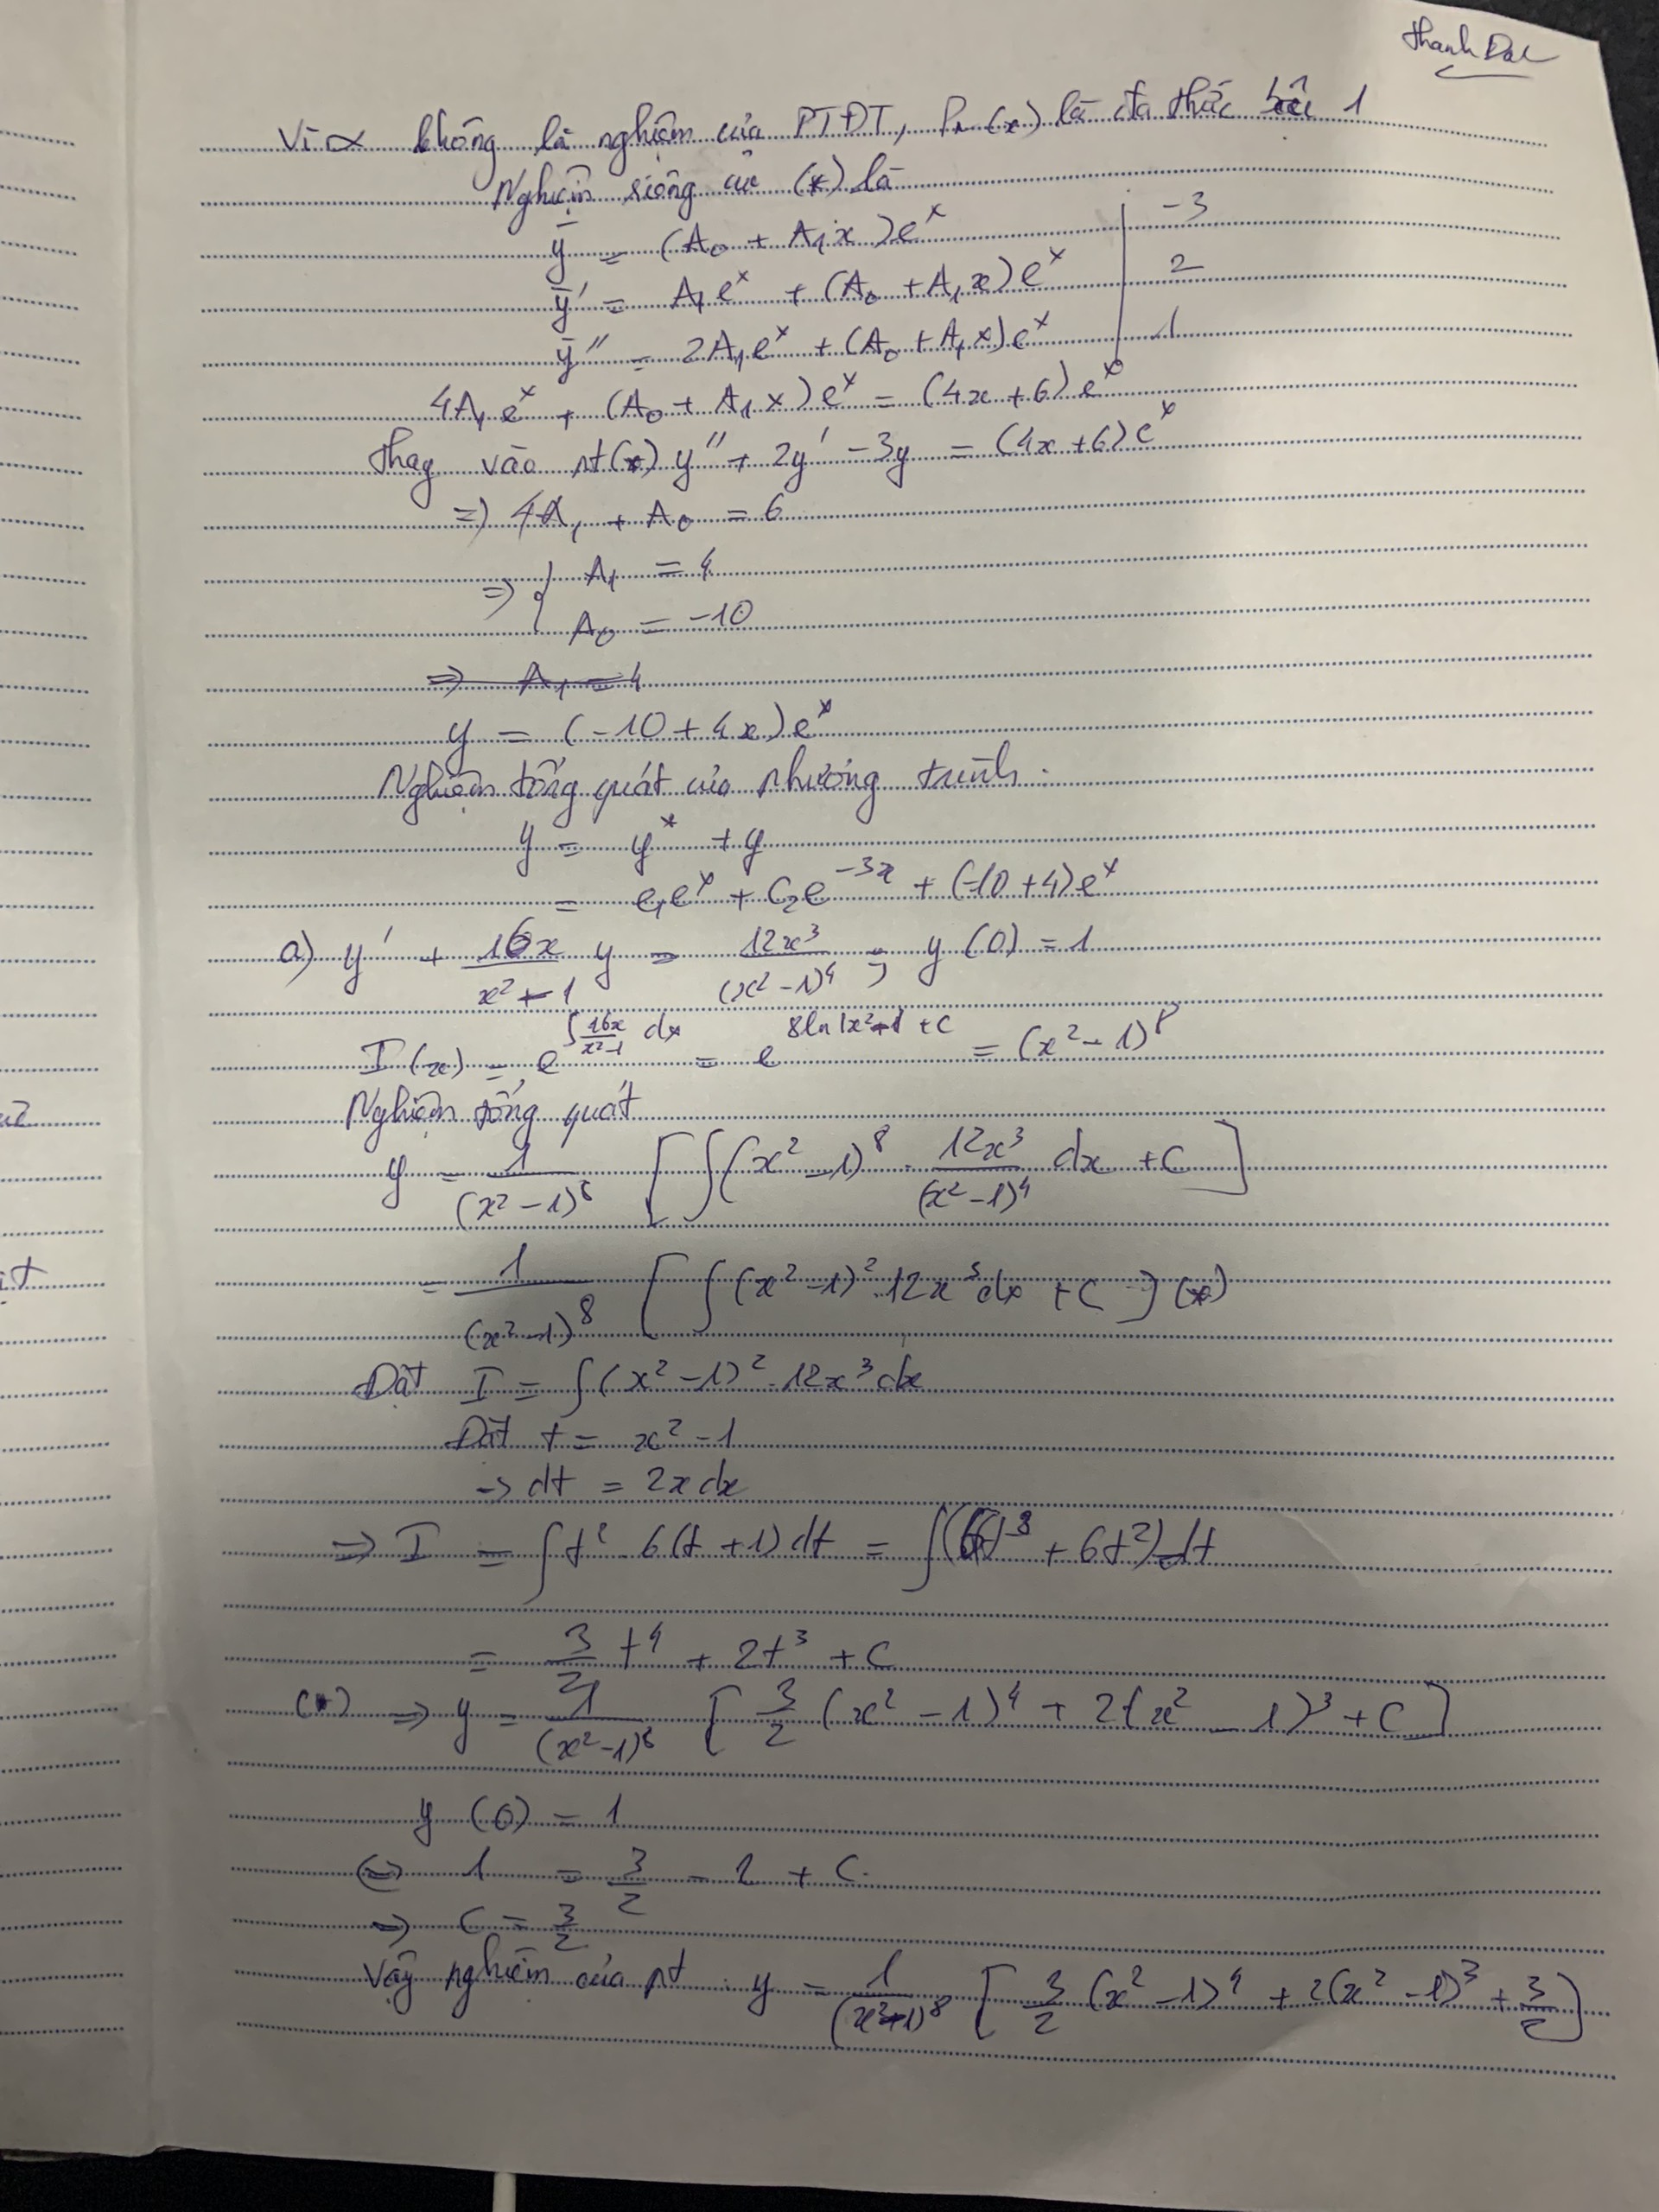 Thanh Đạt
Vì α không là nghiệm của PTĐT, Pn(x) là đa thức bậc 1
Nghiệm riêng của (*) là
ȳ = (A₀ + A₁x)eˣ | -3
ȳ' = A₁eˣ + (A₀ + A₁x)eˣ | 2
ȳ'' = 2A₁eˣ + (A₀ + A₁x)eˣ | 1
4A₁eˣ + (A₀ + A₁x)eˣ = (4x+6)eˣ
Thay vào pt(*) y'' + 2y' - 3y = (4x+6)eˣ
=> 4A₁ + A₀ = 6
=> { A₁ = 4
A₀ = -10
=> A₁ = 4
y = (-10 + 4x)eˣ
Nghiệm tổng quát của phương trình:
y = y* + y
= c₁eˣ + C₂e⁻³ˣ + (-10+4)eˣ
a) y' + 16x/(x²-1) y = 12x³/(x²-1)⁴ ; y(0) = 1
I(x) = e^(∫ 16x/(x²-1) dx) = e^(8ln|x²-1| + C) = (x²-1)⁸
Nghiệm tổng quát
y = 1/(x²-1)⁸ [∫(x²-1)⁸ · 12x³/(x²-1)⁴ dx + C]
= 1/(x²-1)⁸ [∫(x²-1)² · 12x³dx + C] (*)
Đặt I = ∫(x²-1)² · 12x³dx
Đặt t = x² - 1
-> dt = 2xdx
=> I = ∫t² · 6(t+1)dt = ∫(6t³ + 6t²)dt
= 3/2 t⁴ + 2t³ + C
(*) => y = 1/(x²-1)⁸ [3/2 (x²-1)⁴ + 2(x²-1)³ + C]
y(0) = 1
<=> 1 = 3/2 - 2 + C
=> C = 3/2
Vậy nghiệm của pt : y = 1/(x²-1)⁸ [3/2 (x²-1)⁴ + 2(x²-1)³ + 3/2]